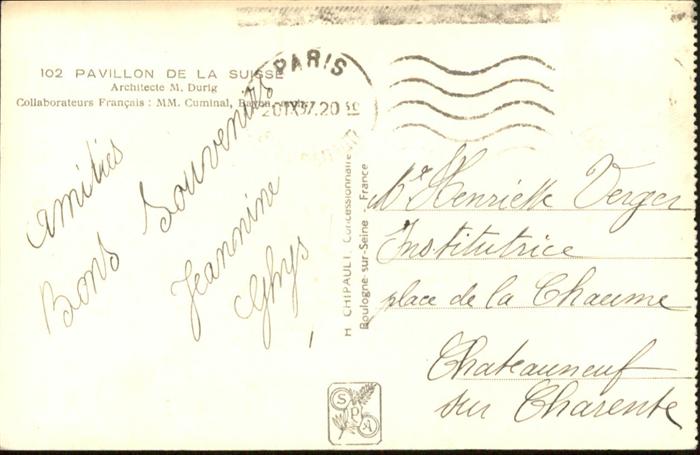 102 PAVILLON DE LA SUISSE
Architecte M. Durig
Collaborateurs Français : MM. Cuminal,
PARIS
20 IX 37. 20
Amitiés
Bons Souvenirs
Jeannine
Ghys
H CHIPAULT, Concessionnaire
Boulogne-sur-Seine - France
Henriette Verger
Institutrice
place de la Chaume
Chateauneuf
sur Charente
SPA